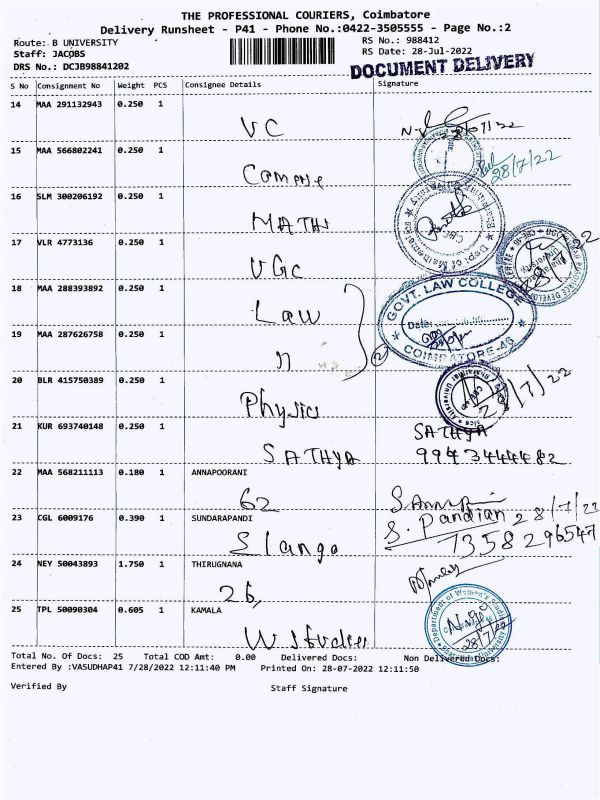 THE PROFESSIONAL COURIERS, Coimbatore
Delivery Runsheet - P41 - Phone No.:0422-3505555 - Page No.:2
Route: B UNIVERSITY
RS No.: 988412
Staff: JACOBS
RS Date: 28-Jul-2022
DRS No.: DCJB98841202
DOCUMENT DELIVERY
S No Consignment No Weight PCS Consignee Details Signature
14 MAA 291132943 0.250 1
VC 28/07/22
15 MAA 566802241 0.250 1
28/7/22
16 SLM 300206192 0.250 1
MATHS
17 VLR 4773136 0.250 1
UGC
18 MAA 288393892 0.250 1
GOVT. LAW COLLEGE
Law
Date:
19 MAA 287626758 0.250 1
COIMBATORE-46
11 2
20 BLR 415750389 0.250 1
Physics 28/7/22
21 KUR 693740148 0.250 1
SATHYA
SATHYA 9943444482
22 MAA 568211113 0.180 1 ANNAPOORANI
62
23 CGL 6009176 0.390 1 SUNDARAPANDI
S. Pandian 28/7/22
Slango
24 NEY 50043893 1.750 1 THIRUGNANA
26,
25 TPL 50090304 0.605 1 KAMALA
Department of Women's Studies
W Studies 28/7/22
Total No. Of Docs: 25 Total COD Amt: 0.00 Delivered Docs: Non Delivered Docs:
Entered By :VASUDHAP41 7/28/2022 12:11:40 PM Printed On: 28-07-2022 12:11:50
Verified By Staff Signature